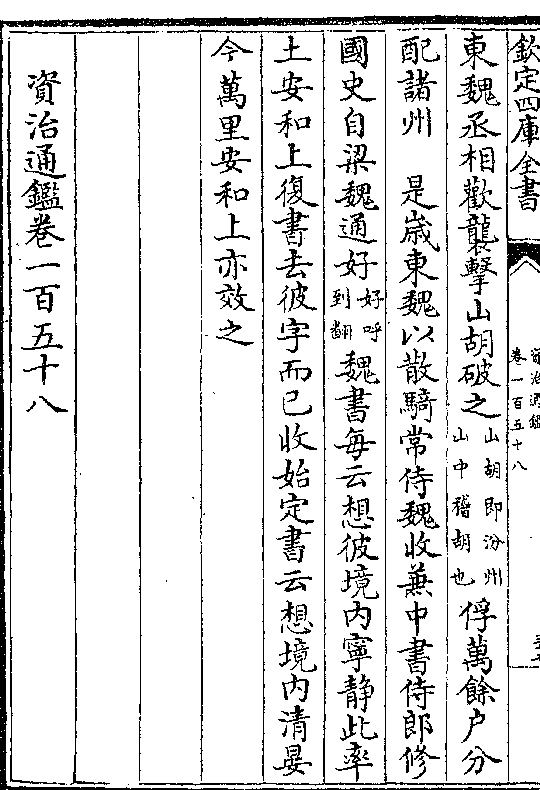 欽定四庫全書
資治通鑑
卷一百五十八
東魏丞相歡襲擊山胡破之山胡即汾州山中稽胡也俘萬餘户分
配諸州　是歲東魏以散騎常侍魏收兼中書侍郎修
國史自梁魏通好好呼到翻魏書每云想彼境内寧静此率
土安和上復書去彼字而已收始定書云想境内清晏
今萬里安和上亦效之
資治通鑑卷一百五十八